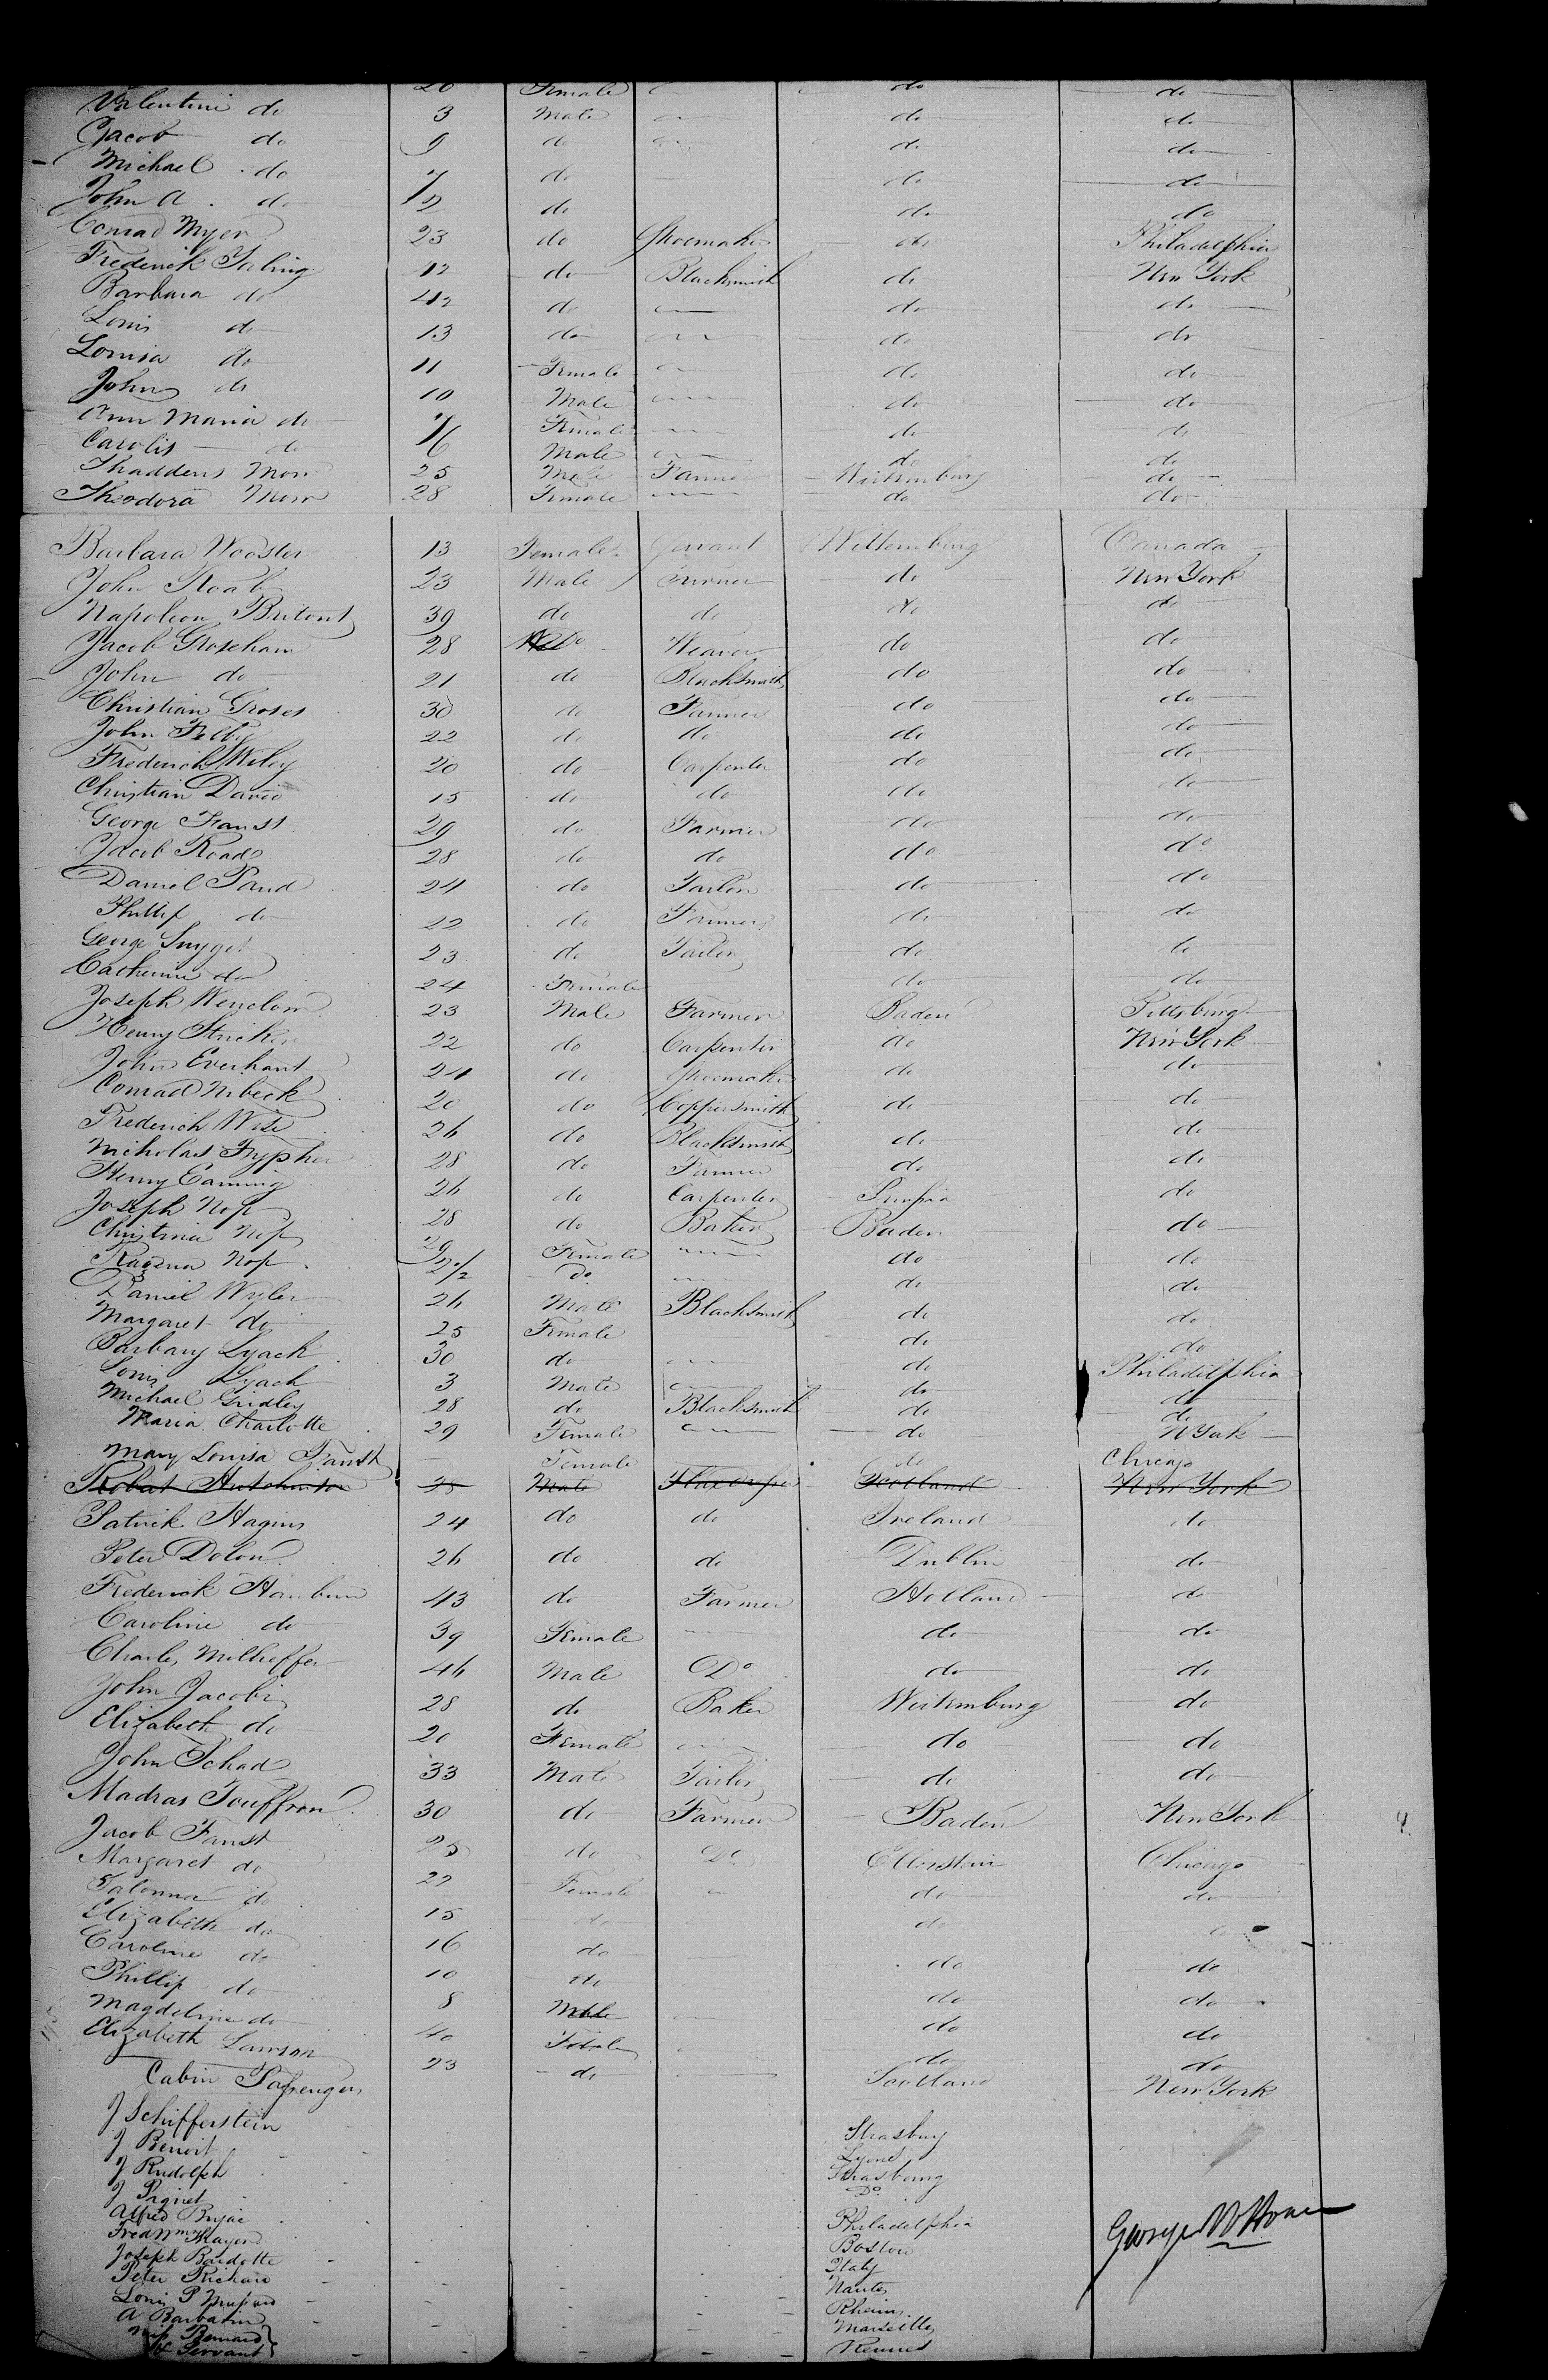 20 Female do do
Valentine do 3 Male do do
Jacob do 9 do do do
Michael do 7 do do do
John A. do 1/2 do do do
Conrad Myer 23 do Shoemaker do Philadelphia
Frederick 42 do Blacksmith do New York
Barbara do 42 do do do
Louis do 13 do do do
Louisa do 11 Female do do
John do 10 Male do do
Ann Maria do 7 Female do do
Carolis do 6 Male do do
Thaddeus 25 Male Farmer do
Theodora 28 Female do do
Barbara Wooster 13 Female Servant Wittemburg Canada
John Roab 23 Male Farmer do New York
Napoleon Britont 39 do do do do
Jacob Groseham 28 Do Weaver do do
John do 21 do Blacksmith do do
Christian Groses 30 do Farmer do do
John 22 do do do do
Frederick Wiley 20 do Carpenter do do
Christian David 15 do do do do
George Faust 29 do Farmer do do
Jacob Road 28 do do do do
Daniel Pand 24 do Tailor do do
Phillip do 22 do Farmer do do
George Snyget 23 do Tailor do do
Catherine do 24 Female do do
Joseph Wenclom 23 Male Farmer Baden Pittsburg
Henry Stricker 22 do Carpenter do New York
John Everhant 24 do Shoemaker do do
Conrad Nibeck 20 do Coppersmith do do
Frederick Wise 26 do Blacksmith do do
Nicholas Fypher 28 do Farmer do do
Henry Eaming 26 do Carpenter Prussia do
Joseph Nop 28 do Baker Baden do
Christina Nop 29 Female do do
Nop 2 1/2 Do do do
Daniel Wyler 26 Male Blacksmith do do
Margaret do 25 Female do do
Barbary Lyach 30 do do Philadelphia
Louis Lyach 3 Male do do
Michael Gridley 28 do Blacksmith do do
Maria Charlotte 29 Female do N York
Mary Louisa Faust Female do Chicago
Robert Hutchinson 28 Male Flaxdresser Scotland New York
Patrick Hagins 24 do do Ireland do
Peter Dolon 26 do do Dublin do
Frederick 43 do Farmer Holland do
Caroline do 39 Female do do
Charles Milheffer 46 Male Do do do
John Jacobi 28 do Baker Wirtemburg do
Elizabeth do 20 Female do do
John Schad 33 Male Tailor do do
Madras Touffron 30 do Farmer Baden New York
Jacob Faust 25 do Do Chicago
Margaret do 22 Female do do
Salonna do 15 do do do
Elizabeth do 16 do do do
Caroline do 10 do do do
Phillip do 8 Male do do
Magdeline do 40 Female do do
Elizabeth Lawson 23 do Scotland New York
Cabin Passengers
J Schifferstein Strasburg
J Benoit Lyons
J Rudolph Strasbourg
J Pignet Do
Alfred Bujac Philadelphia
Fred Wm Thayer Boston
Joseph Bardotte Italy
Peter Richard Nantes
Louis P Rheims
A Barbarin Marseilles
Miss Bernard Rennes
& Servant
George W